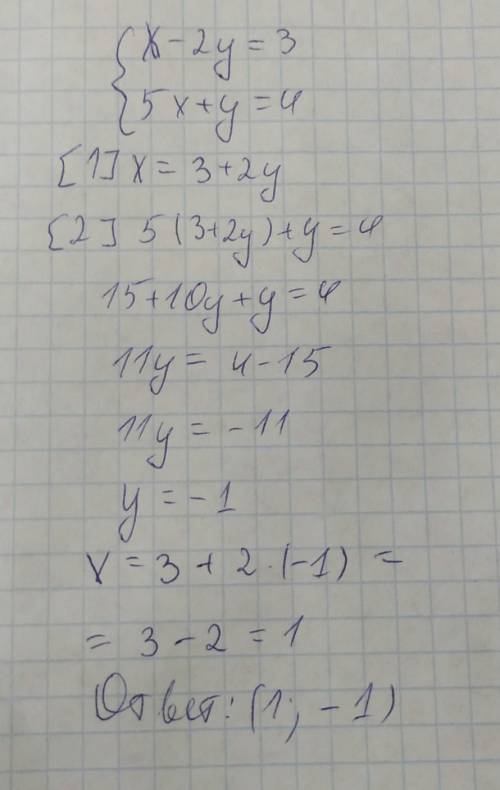 { x - 2y = 3
5x + y = 4
[1] x = 3 + 2y
[2] 5(3+2y) + y = 4
15 + 10y + y = 4
11y = 4 - 15
11y = -11
y = -1
x = 3 + 2·(-1) =
= 3 - 2 = 1
Ответ: (1; -1)